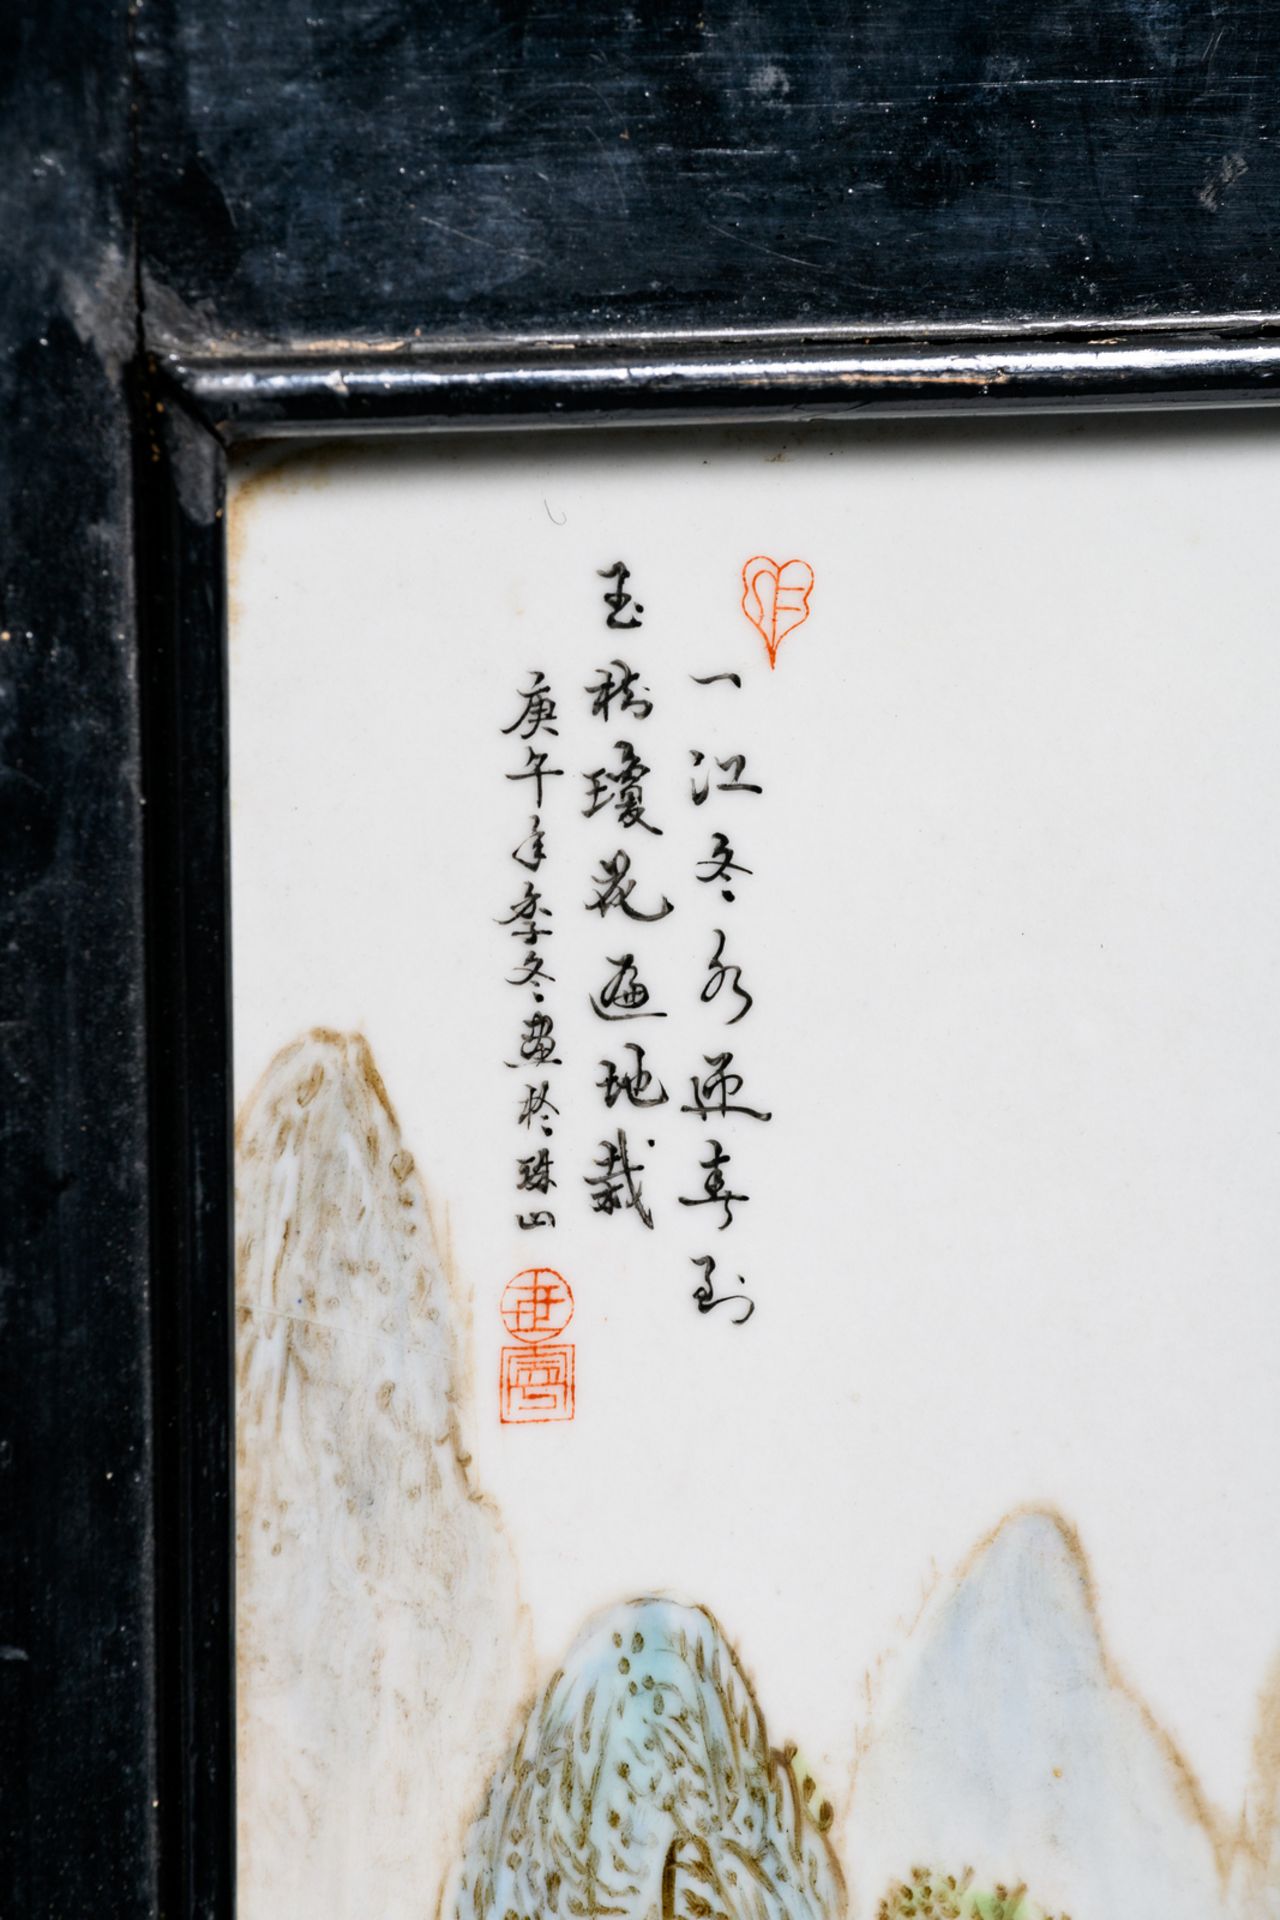 一江冬水迎春到
玉樹瓊花遍地栽
庚午年季冬畫於珠山